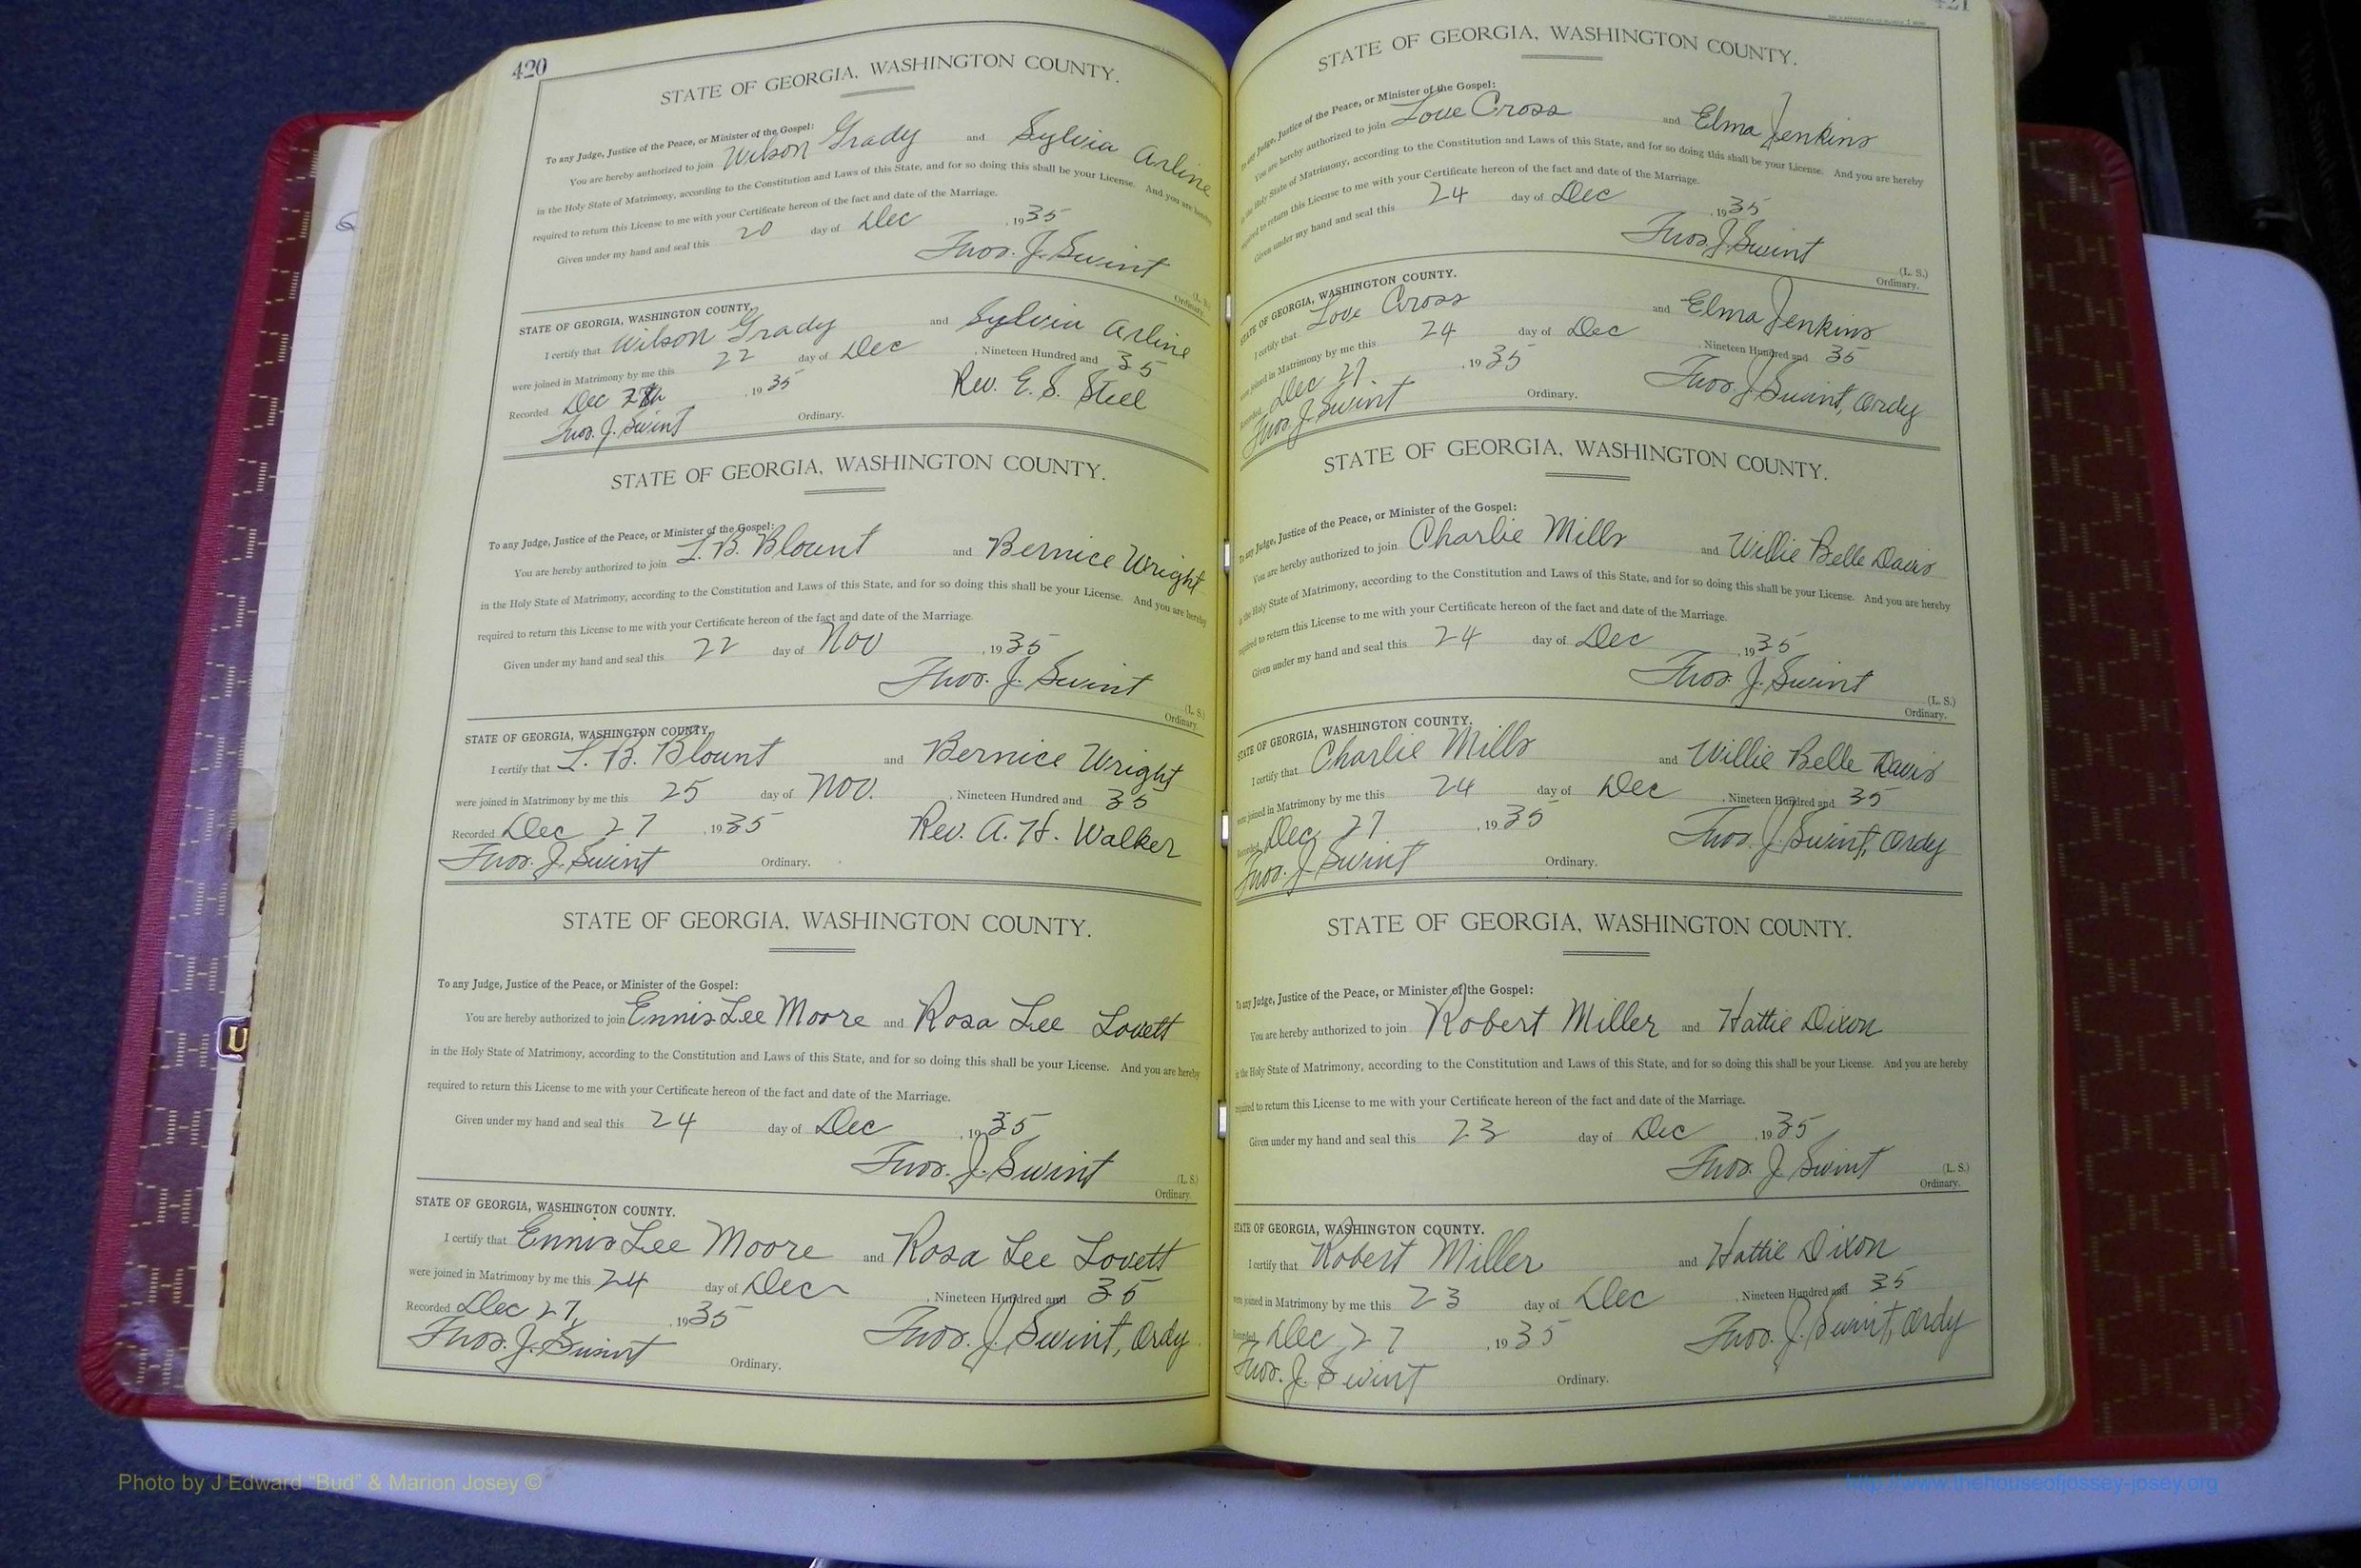 420
STATE OF GEORGIA, WASHINGTON COUNTY.
To any Judge, Justice of the Peace, or Minister of the Gospel:
You are hereby authorized to join Wilson Grady and Sylvia Arline
in the Holy State of Matrimony, according to the Constitution and Laws of this State, and for so doing this shall be your License. And you are hereby
required to return this License to me with your Certificate hereon of the fact and date of the Marriage.
Given under my hand and seal this 20 day of Dec , 1935
Thos. J. Swint
(L. S.)
Ordinary.
STATE OF GEORGIA, WASHINGTON COUNTY.
I certify that Wilson Grady and Sylvia Arline
were joined in Matrimony by me this 22 day of Dec , Nineteen Hundred and 35
Recorded Dec 27th , 1935 Rev. E. S. Steel
Thos. J. Swint Ordinary.
STATE OF GEORGIA, WASHINGTON COUNTY.
To any Judge, Justice of the Peace, or Minister of the Gospel:
You are hereby authorized to join L. B. Blount and Bernice Wright
in the Holy State of Matrimony, according to the Constitution and Laws of this State, and for so doing this shall be your License. And you are hereby
required to return this License to me with your Certificate hereon of the fact and date of the Marriage.
Given under my hand and seal this 22 day of Nov , 1935
Thos. J. Swint
(L. S.)
Ordinary.
STATE OF GEORGIA, WASHINGTON COUNTY.
I certify that L. B. Blount and Bernice Wright
were joined in Matrimony by me this 25 day of Nov. , Nineteen Hundred and 35
Recorded Dec 27 , 1935 Rev. A. H. Walker
Thos. J. Swint Ordinary.
STATE OF GEORGIA, WASHINGTON COUNTY.
To any Judge, Justice of the Peace, or Minister of the Gospel:
You are hereby authorized to join Ennis Lee Moore and Rosa Lee Lovett
in the Holy State of Matrimony, according to the Constitution and Laws of this State, and for so doing this shall be your License. And you are hereby
required to return this License to me with your Certificate hereon of the fact and date of the Marriage.
Given under my hand and seal this 24 day of Dec , 1935
Thos. J. Swint
(L. S.)
Ordinary.
STATE OF GEORGIA, WASHINGTON COUNTY.
I certify that Ennis Lee Moore and Rosa Lee Lovett
were joined in Matrimony by me this 24 day of Dec , Nineteen Hundred and 35
Recorded Dec 27, , 1935 Thos. J. Swint, Ordy
Thos. J. Swint Ordinary.
421
STATE OF GEORGIA, WASHINGTON COUNTY.
To any Judge, Justice of the Peace, or Minister of the Gospel:
You are hereby authorized to join Love Cross and Elma Jenkins
in the Holy State of Matrimony, according to the Constitution and Laws of this State, and for so doing this shall be your License. And you are hereby
required to return this License to me with your Certificate hereon of the fact and date of the Marriage.
Given under my hand and seal this 24 day of Dec , 1935
Thos. J. Swint
(L. S.)
Ordinary.
STATE OF GEORGIA, WASHINGTON COUNTY.
I certify that Love Cross and Elma Jenkins
were joined in Matrimony by me this 24 day of Dec , Nineteen Hundred and 35
Recorded Dec 27. , 1935 Thos. J. Swint, Ordy
Thos. J. Swint Ordinary.
STATE OF GEORGIA, WASHINGTON COUNTY.
To any Judge, Justice of the Peace, or Minister of the Gospel:
You are hereby authorized to join Charlie Mills and Willie Belle Davis
in the Holy State of Matrimony, according to the Constitution and Laws of this State, and for so doing this shall be your License. And you are hereby
required to return this License to me with your Certificate hereon of the fact and date of the Marriage.
Given under my hand and seal this 24 day of Dec , 1935
Thos. J. Swint
(L. S.)
Ordinary.
STATE OF GEORGIA, WASHINGTON COUNTY.
I certify that Charlie Mills and Willie Belle Davis
were joined in Matrimony by me this 24 day of Dec , Nineteen Hundred and 35
Recorded Dec, 27 , 1935 Thos. J. Swint, Ordy
Thos. J. Swint Ordinary.
STATE OF GEORGIA, WASHINGTON COUNTY.
To any Judge, Justice of the Peace, or Minister of the Gospel:
You are hereby authorized to join Robert Miller and Hattie Dixon
in the Holy State of Matrimony, according to the Constitution and Laws of this State, and for so doing this shall be your License. And you are hereby
required to return this License to me with your Certificate hereon of the fact and date of the Marriage.
Given under my hand and seal this 23 day of Dec , 1935
Thos. J. Swint
(L. S.)
Ordinary.
STATE OF GEORGIA, WASHINGTON COUNTY.
I certify that Robert Miller and Hattie Dixon
were joined in Matrimony by me this 23 day of Dec , Nineteen Hundred and 35
Recorded Dec, 27 , 1935 Thos. J. Swint, Ordy
Thos. J. Swint Ordinary.
U
Photo by J Edward “Bud” & Marion Josey ©
http://www.thehouseofjossey-josey.org